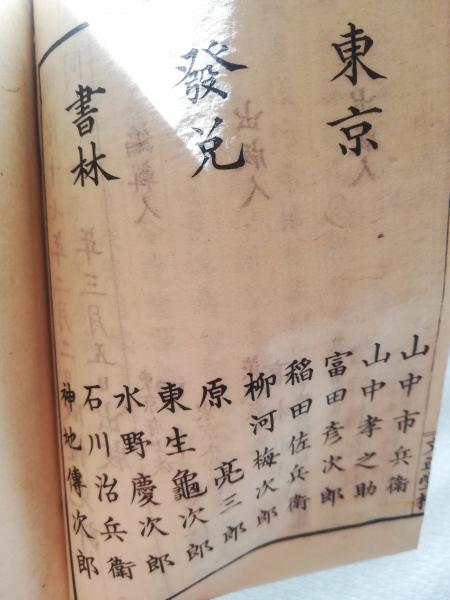 東京
發兌
書林
山中市兵衛
山中孝之助
富田彦次郎
稲田佐兵衛
柳河梅次郎
原亮三郎
東生龜次郎
水野慶次郎
石川治兵衛
神地傳次郎